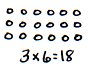 3×6=18